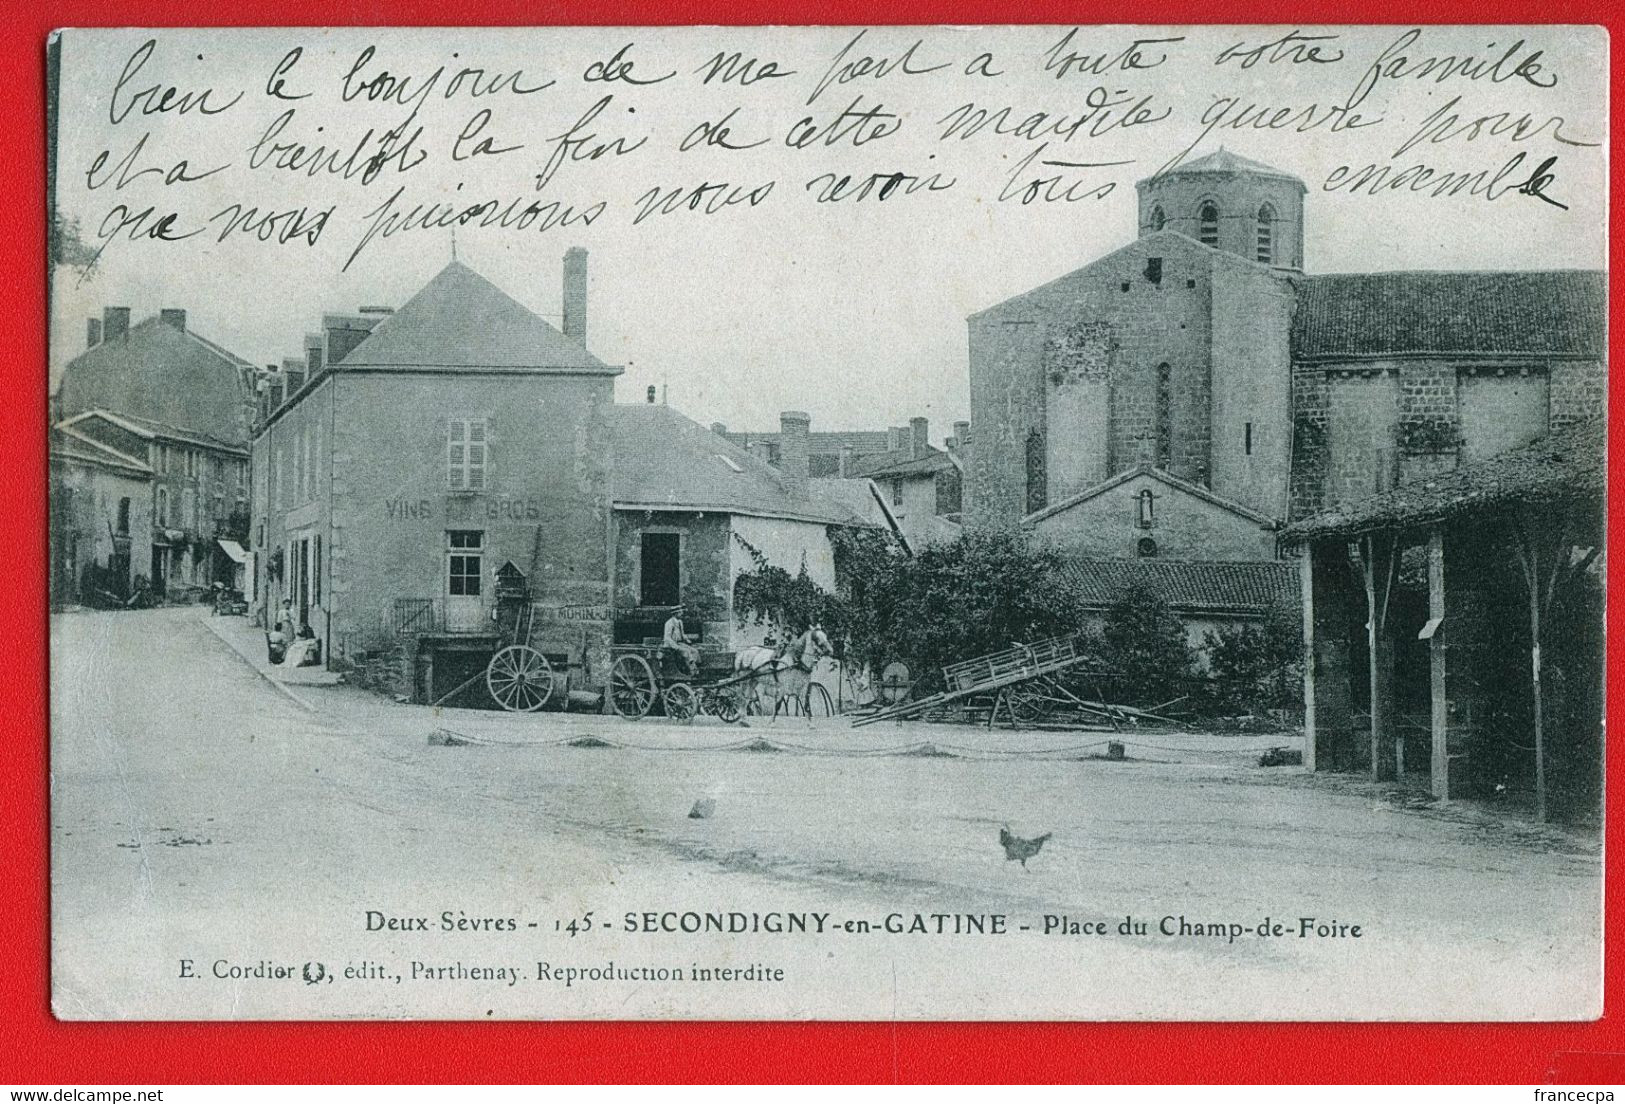 bien le bonjour de ma part a toute votre famille
et a bientôt la fin de cette maudite guerre pour
que nous puissions nous revoir tous ensemble
VINS GROS
MORIN
Deux-Sèvres - 145 - SECONDIGNY-en-GATINE - Place du Champ-de-Foire
E. Cordier, édit., Parthenay. Reproduction interdite
www.delcampe.net
francecpa